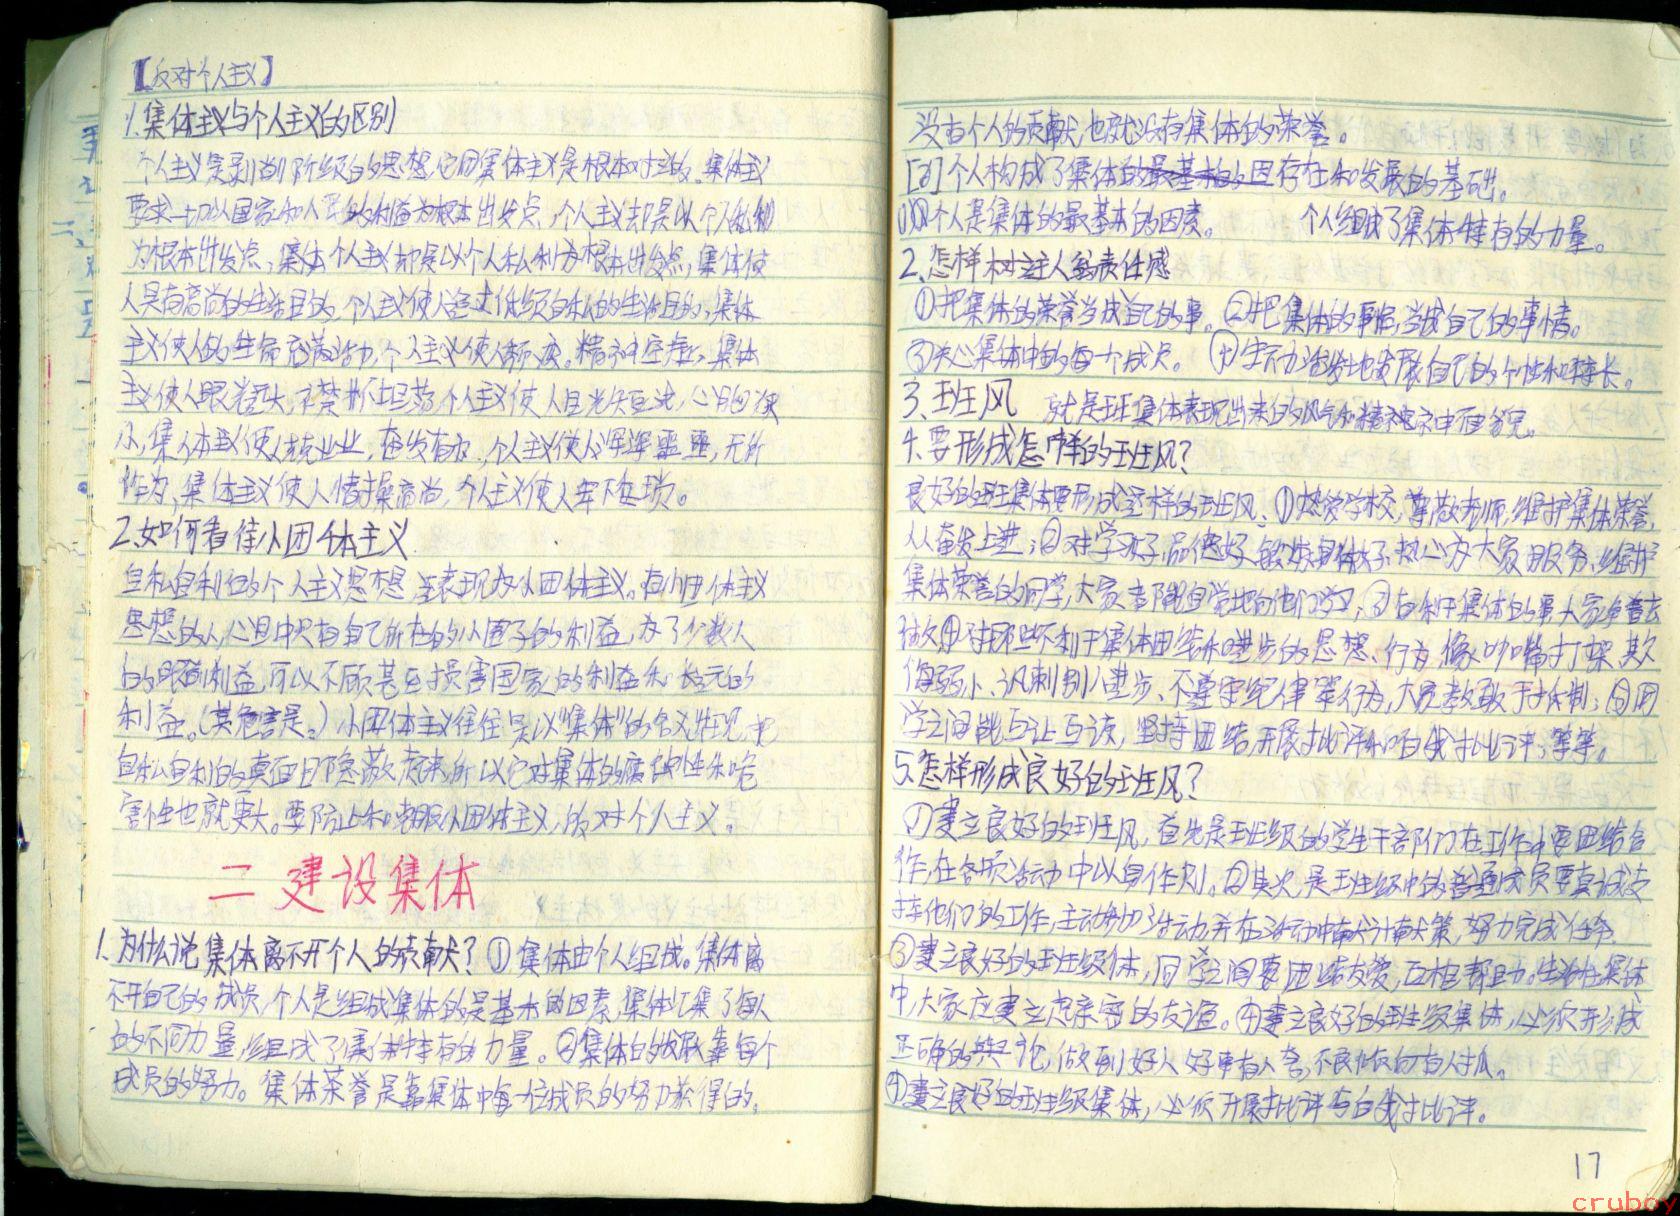 【反对个人主义】
1.集体主义与个人主义的区别
个人主义是剥削阶级的思想它同集体主义是根本对立的。集体主义
要求一切以国家和人民的利益为根本出发点,个人主义却是以个人私利
为根本出发点,集体个人主义却是以个人私利为根本出发点,集体使
人具有高尚的生活目的,个人主义使人追求低级自私的生活目的,集体
主义使人的生命充满活力,个人主义使人颓废。精神空虚;集体
主义使人眼光远大,襟怀坦荡,个人主义使人目光短浅,心胸狭
小,集体主义使人兢兢业业,奋发有为,个人主义使人浑浑噩噩,无所
作为,集体主义使人情操高尚,个人主义使人卑下猥琐。
2.如何看待小团体主义
自私自利的个人主义思想,主表现为小团体主义。有小团体主义
思想的人,心目中只有自己所在的小圈子的利益,为了少数人
的眼前利益,可以不顾甚至损害国家的利益和长远的
利益。(其危害是:)小团体主义往往是以“集体”的名义出现,把
自私自利的真面目隐蔽起来,所以它对集体的腐蚀性和危
害性也就更大。要防止和克服小团体主义,反对个人主义。
二 建设集体
1.为什么说集体离不开个人的贡献?①集体由个人组成。集体离
不开自己的成员,个人是组成集体的最基本的因素,集体汇集了每人
的不同力量,组成了集体特有的力量。②集体的成就靠每个
成员的努力。集体荣誉是靠集体中每一位成员的努力获得的,
没有个人的贡献,也就没有集体的荣誉。
[2]个人构成了集体的最基本的因存在和发展的基础。
个人是集体的最基本的因素。 个人组成了集体特有的力量。
2.怎样树立主人翁责任感
①把集体的荣誉当成自己的事。②把集体的事情,当成自己的事情。
③关心集体中的每一个成员。④生动活泼地发展自己的个性和特长。
3.班风 就是班集体表现出来的风气和精神面貌。
4.要形成怎样的班风?
良好的班集体要形成这样的班风、①热爱学校,尊敬老师,维护集体荣誉,
人人奋发上进;②对学习好,品德好,身体好,热心为大家服务,维护
集体荣誉的同学,大家都能自觉地向他们学习;③有利于集体的事大家争着去
做④对那些不利于集体团结和进步的思想、行为,像吵嘴打架,欺
侮弱小、讽刺别人进步、不遵守纪律等行为,大家都敢于抵制;⑤同
学之间能互让互谅,坚持团结,开展批评和自我批评;等等。
5.怎样形成良好的班风?
①建立良好的班风,首先是班级的学生干部们在工作中要团结合
作,在各项活动中以身作则。②其次,是班级中的普通成员要真诚支
持他们的工作,主动参加活动,并在活动中献计献策,努力完成任务.
③建立良好的班级集体,同学之间要团结友爱,互相帮助。生活在集体
中,大家应建立起亲密的友谊。④建立良好的班级集体,必须形成
正确的舆论,做到好人好事有人夸,不良倾向有人抓。
④建立良好的班级集体,必须开展批评与自我批评。
17
cruboy